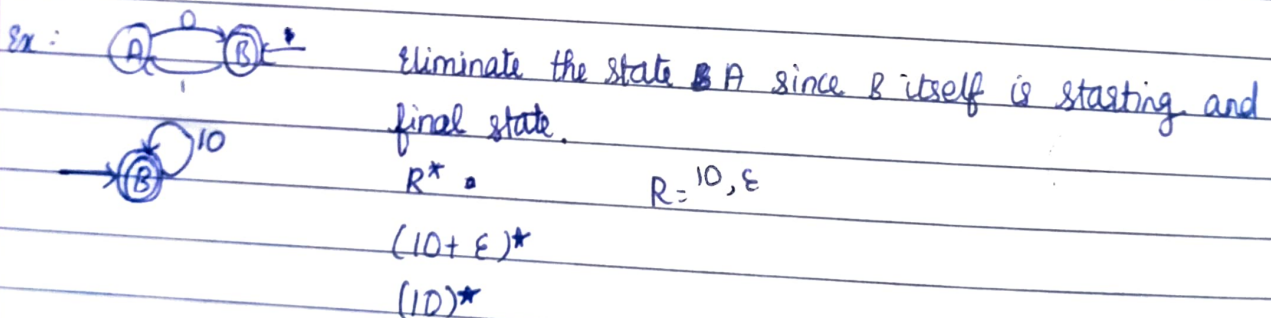 Ex :
A 0 B 1
Eliminate the state A since B itself is starting and
final state.
B 10
R* . R = 10, ε
(10 + ε)*
(10)*